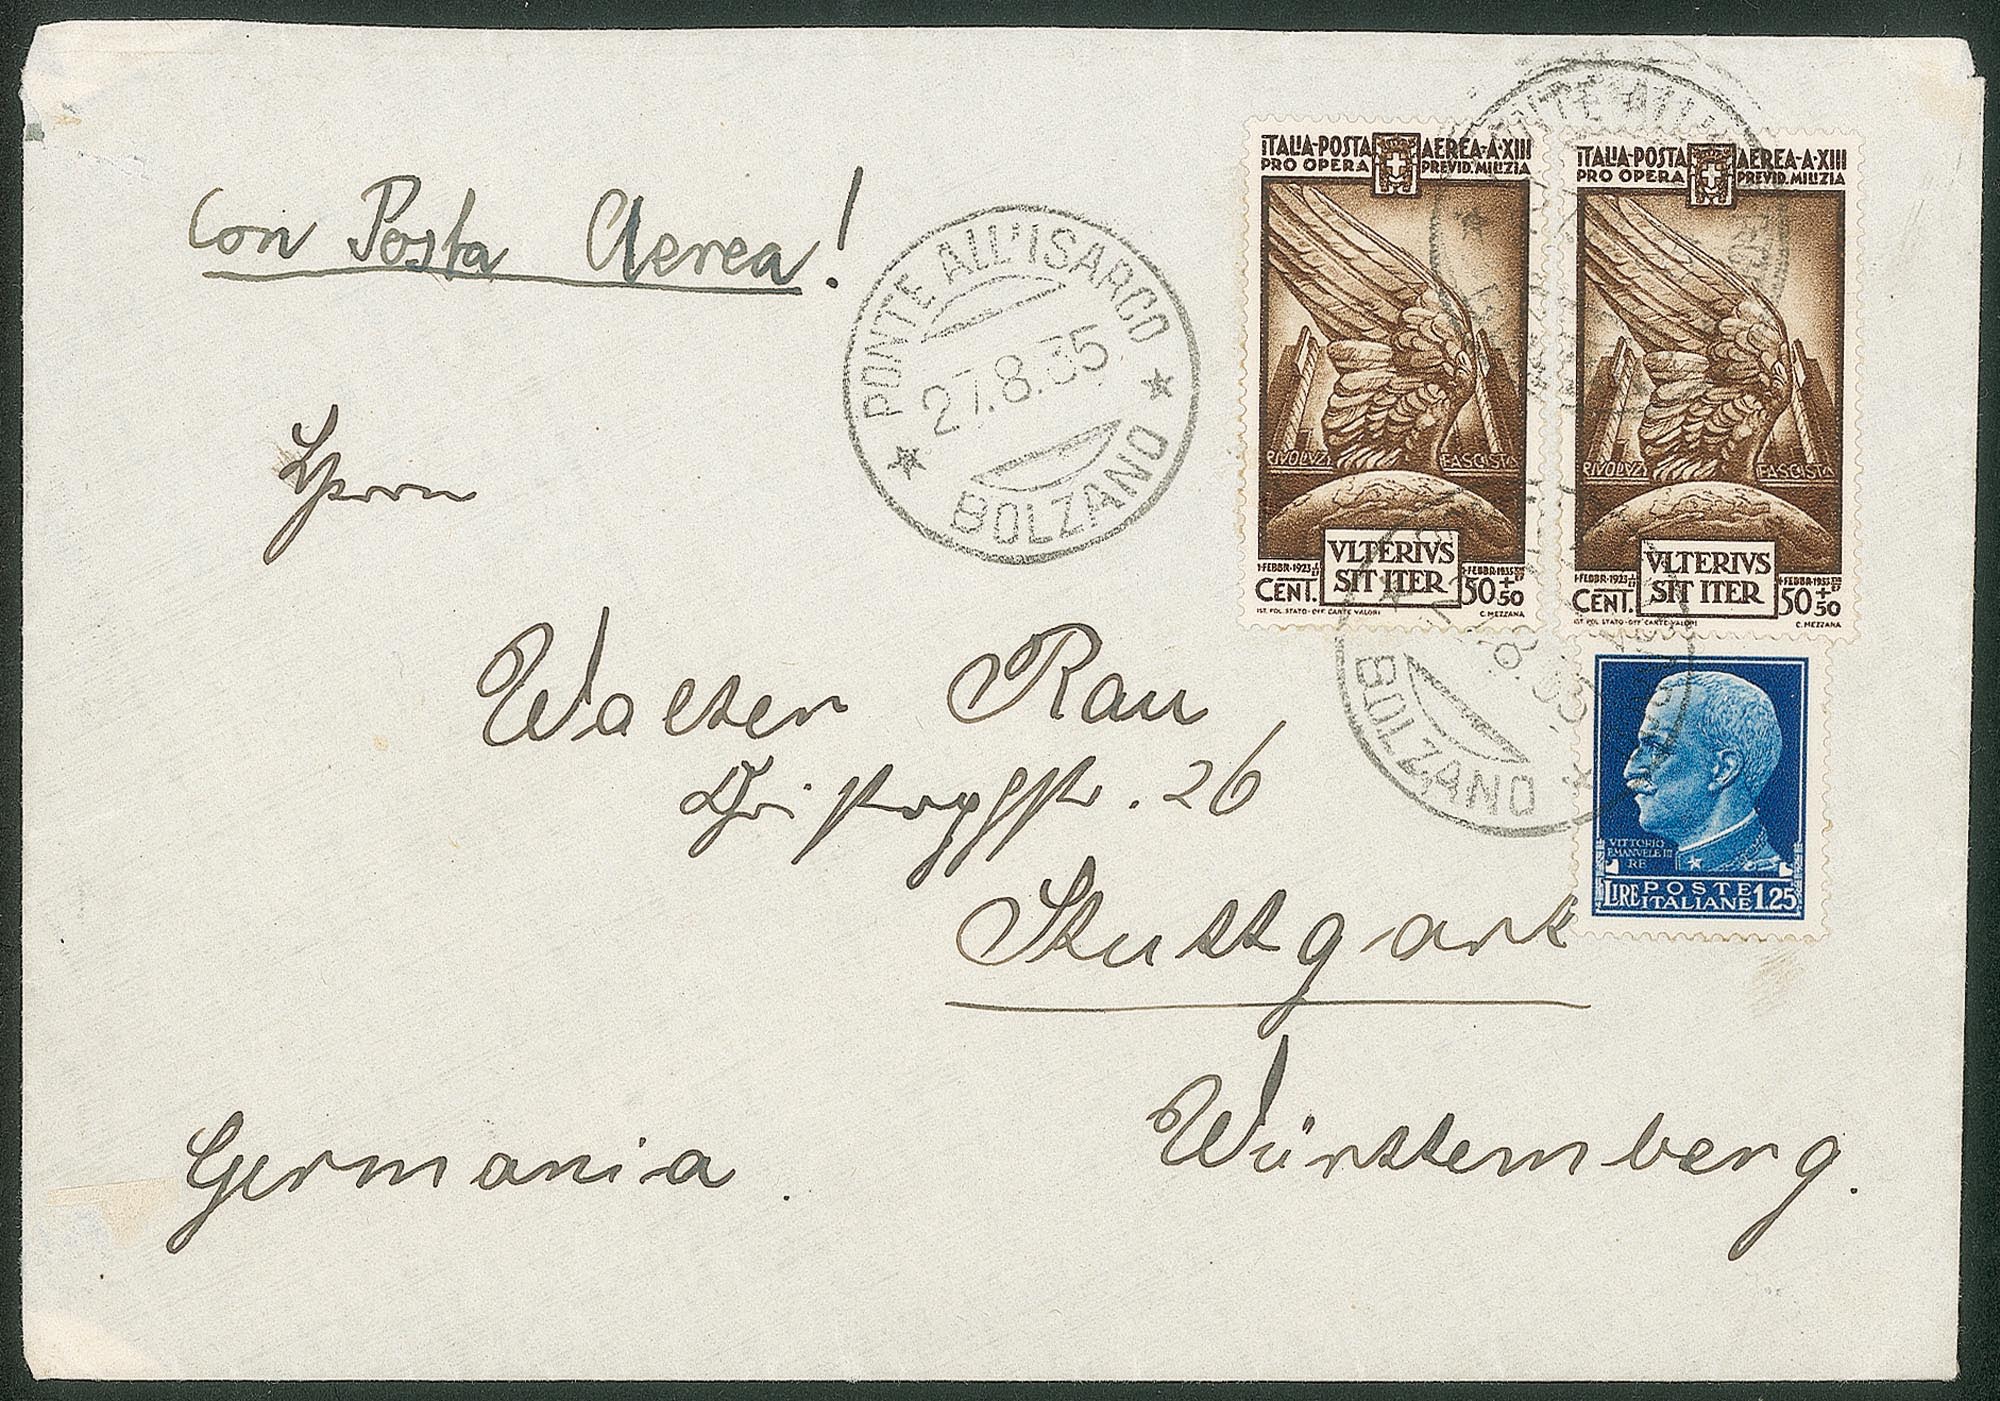 Con Posta Aerea!
PONTE ALL'ISARCO
27.8.35
BOLZANO
ITALIA·POSTA AEREA·A·XIII
PRO OPERA PREVID. MILIZIA
RIVOLVZ. FASCISTA
VLTERIVS
SIT ITER
1·FEBBR·1923
CENT. 50+50
IST. POL. STATO·OFF. CARTE·VALORI C. MEZZANA
ITALIA·POSTA AEREA·A·XIII
PRO OPERA PREVID. MILIZIA
RIVOLVZ. FASCISTA
VLTERIVS
SIT ITER
1·FEBBR·1923 1·FEBBR·1935
CENT. 50+50
IST. POL. STATO·OFF. CARTE·VALORI C. MEZZANA
BOLZANO
VITTORIO
EMANVELE III
RE
LIRE POSTE ITALIANE 1.25
Herrn
Walter Rau
26
Stuttgart
Württemberg.
Germania.